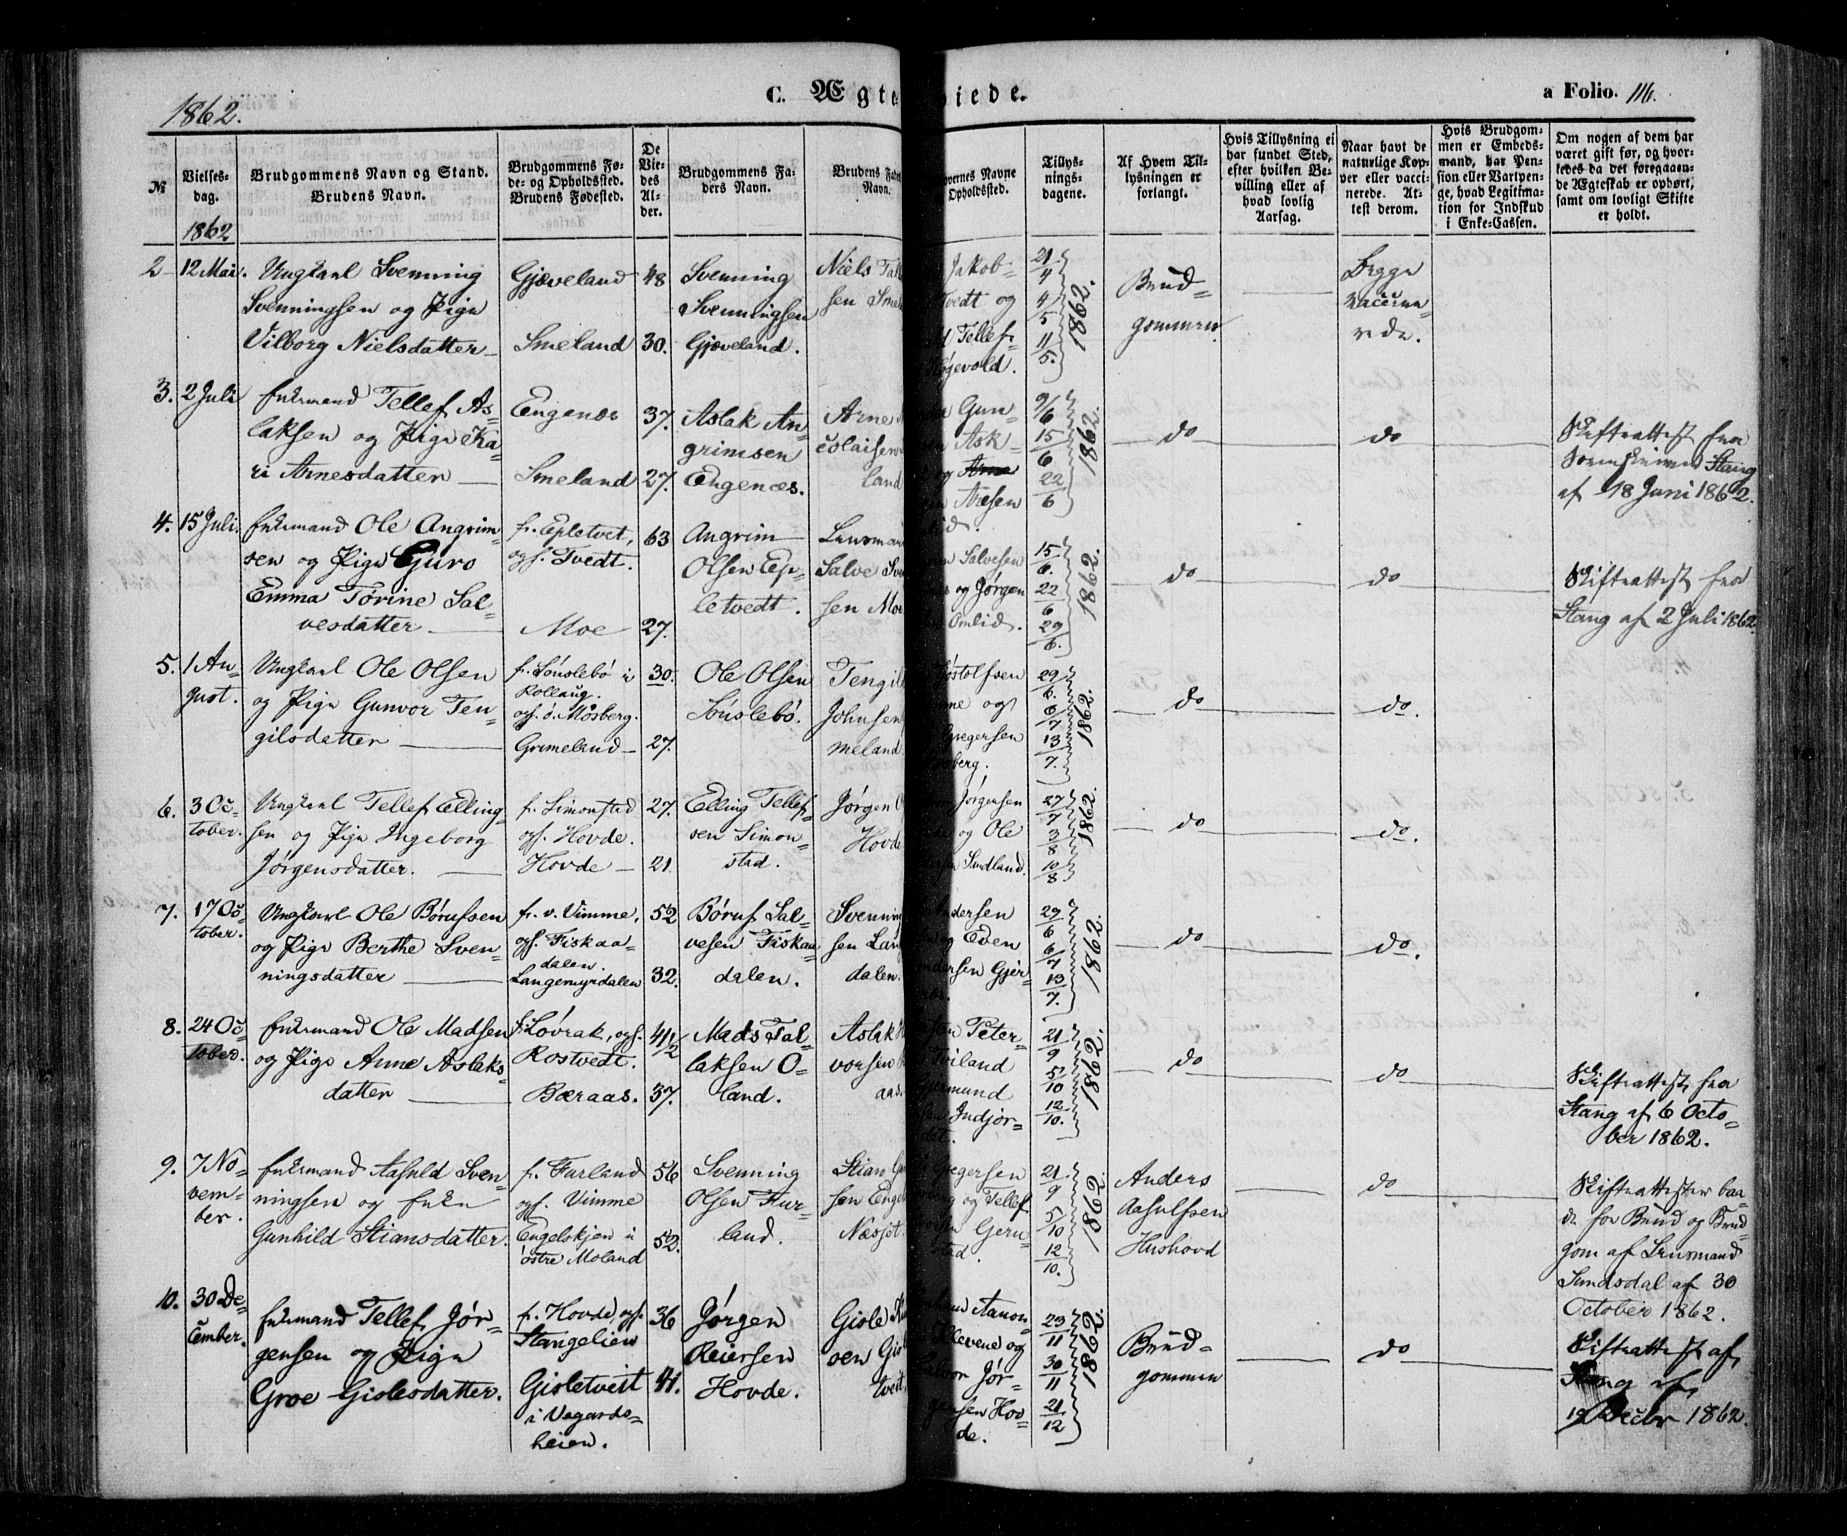 1862.
C. Ægte
viede.
a Folio. 116.
№
Vielses-
dag.
1862
Brudgommens Navn og Stand.
Brudens Navn.
Brudgommens Fø-
de- og Opholdssted.
Brudens Fødested.
De
Vie-
des
Al-
der.
Brudgommens Fa-
ders Navn.
Brudens Fad
Navn.
vernes Navne
Opholdssted.
Tillys-
nings-
dagene.
Af Hvem Til-
lysningen er
forlangt.
Hvis Tillysning ei
har fundet Sted,
efter hvilken Be-
villing eller af
hvad lovlig
Aarsag.
Naar havt de
naturlige Kop-
per eller vacci-
nerede. At-
test derom.
Hvis Brudgom-
men er Embeds-
mand, har Pen-
sion eller Vartpen-
ge, hvad Legitima-
tion for Indskud
i Enke-Cassen.
Om nogen af dem har
været gift før, og hvor-
ledes da det foregaaen-
de Ægteskab er ophørt,
samt om lovligt Skifte
er holdt.
2 12 Mai.
Ungkarl Svenning
Svenningsen og Pige
Vilborg Nielsdatter
Gjæveland
Smeland
48
30.
Svenning
Svenningsen
Gjæveland.
Niels Tal
sen Sme
Jakob-
Tvedt og
Tellef
Høgevold.
21/4 4/5 11/5. 1862.
Brud-
gommen.
Begge
vaccine-
rede.
3. 2 Juli
Enkemand Tellef As-
laksen og Pige Ka-
ri Arnesdatter
Engenæs
Smeland
37.
27.
Aslak An-
grimsen
Engenæs.
Arne
colaisen
land
Gun-
Ask
Arne
9/6 15/6 22/6 1862.
do
do
Skifteattest fra
Stang
af 18 Juni 1862.
4. 15 Juli.
Enkemand Ole Angrim-
sen og Pige Guro
Emma Tørine Sal-
vesdatter
fr. Epletvet,
ops. Tvedt.
Moe
63
27.
Angrim
Olsen Ep-
letvedt.
Lensman
Salve Sve
sen Moe
Salvesen
og Jørgen
Omlid.
15/6. 22/6 29/6. 1862.
do
do
Skifteattest fra
Stang af 2 Juli 1862.
5. 1 Au-
gust.
Ungkarl Ole Olsen
og Pige Gunvor Ten-
gilsdatter
fr. Sönslebö i
Rollaug.
ops. ö. Mösberg.
Grimeland
30.
27.
Ole Olsen
Sönslebö.
Tengil
Johnsen
meland
og
Gregersen
berg.
29/6. 6/7 13/7. 1862.
do
do.
6. 3 Oc-
tober.
Ungkarl Tellef Elling-
sen og Pige Ingeborg
Jörgensdatter.
fr. Simonsted
ops. Hovde.
Hovde
27.
21.
Elling Tellef-
sen Simon-
stad.
Jørgen
Hovde
Jörgensen
og Ole
Smdland.
27/7 3/8 10/8 1862.
do
do.
7. 17 Oc-
tober.
Ungkarl Ole Börufsen
og Pige Berthe Sven-
ningsdatter
fr. v. Vimme,
ops. Fiskaa-
dalen.
Langemyrdalen
52
32.
Böruf Sal-
vesen Fiskaa
dalen.
Svenning
sen Lan
dalen.
Andersen
og Even
Andersen Gjer-
29/6 6/7 13/7. 1862.
do
do.
8. 24 Oc-
tober.
Enkemand Ole Madsen
og Pige Anne Aslaks-
datter
fr. Lövrak, ops.
Rostvedt.
Bæraas.
41 1/2
37.
Mads Tal-
laksen O-
land.
Aslak
vorsen
aas.
Peter-
Tviland
Germund
Indjor-
det.
21/9 5/10 12/10. 1862.
do
do
Skifteattest fra
Stang af 6 Octo-
ber 1862.
9. 7 No-
vem-
ber.
Enkemand Aasuld Sven-
ningsen og Enke
Gunhild Stiansdatter.
fr. Furland
ops. Vimme
Engelskjen i
östre Moland
56
52.
Svenning
Olsen Fur-
land.
Stian
sen Enge
Næsset
Gregersen
og Tellef
Geru-
stad.
21/9 5/10 12/10. 1862.
Anders
Aasulfsen
Hushovd
do
Skifteattester baa-
de for Brud og Brud
gom af Lensmand
Sundsdal af 30
October 1862.
10. 30 De-
cember.
Enkemand Tellef Jör-
gensen og Pige
Groe Gislesdatter.
fr. Hovde, ops.
Stangelien
Gisletveit
i Vegards-
heien.
36
41.
Jørgen
Reiersen
Hovde.
Gisle
sen Gis
tveit
Aanon-
Ellevene og
Jör-
gensen Hov-
de.
23/11 30/11 21/12 1862.
Brud-
gommen
do
Skifteattest af
Stang af
19 Decbr 1862.